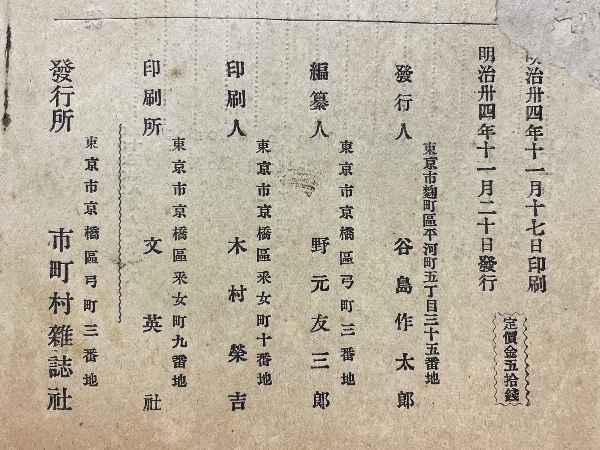 明治卅四年十一月十七日印刷
明治卅四年十一月二十日發行
定價金五拾錢
東京市麴町區平河町五丁目三十五番地
發行人 谷島作太郎
東京市京橋區弓町三番地
編纂人 野元友三郎
東京市京橋區釆女町十番地
印刷人 木村榮吉
東京市京橋區釆女町九番地
印刷所 文英社
東京市京橋區弓町三番地
發行所 市町村雜誌社